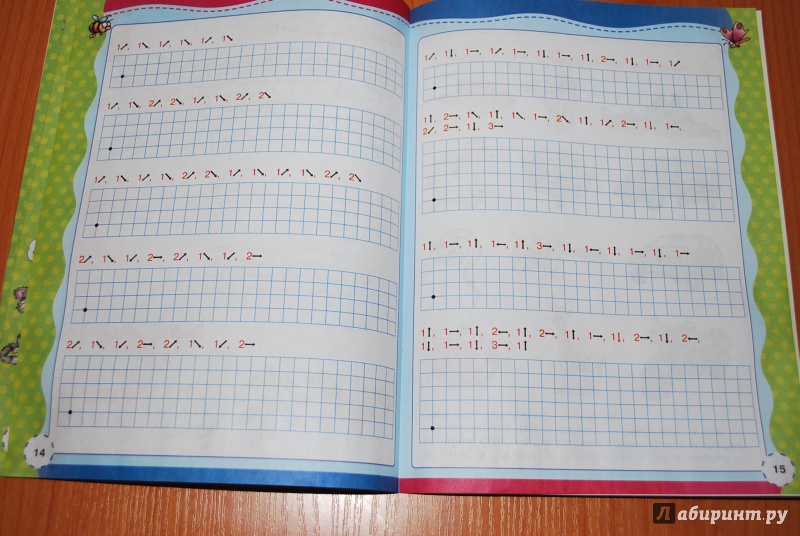 1↗, 1↘, 1↗, 1↘, 1↗, 1↘
1↗, 1↘, 2↗, 2↘, 1↗, 1↘, 2↗, 2↘
1↗, 1↘, 1↗, 1↘, 2↗, 2↘, 1↗, 1↘, 1↗, 1↘, 2↗, 2↘
2↗, 1↘, 1↙, 2→, 2↗, 1↘, 1↙, 2→
2↗, 1↘, 1↙, 2→, 2↗, 1↘, 1↙, 2→
14
1↗, 1↓, 1→, 1↗, 1→, 1↓, 1→, 1↑, 2→, 1↓, 1→, 1↗
1↑, 2→, 1↖, 1↑, 1↖, 1→, 2↘, 1↑, 1↗, 2→, 1↓, 1←,
2↙, 2→, 1↓, 3→
1↑, 1→, 1↑, 1←, 1↑, 3→, 1↓, 1←, 1↓, 1→, 1↓, 1→
1↑, 1→, 1↑, 2←, 1↑, 2→, 1↑, 1→, 1↓, 2→, 1↓, 2←,
1↓, 1→, 1↓, 3→, 1↑
15
Лабиринт.ру